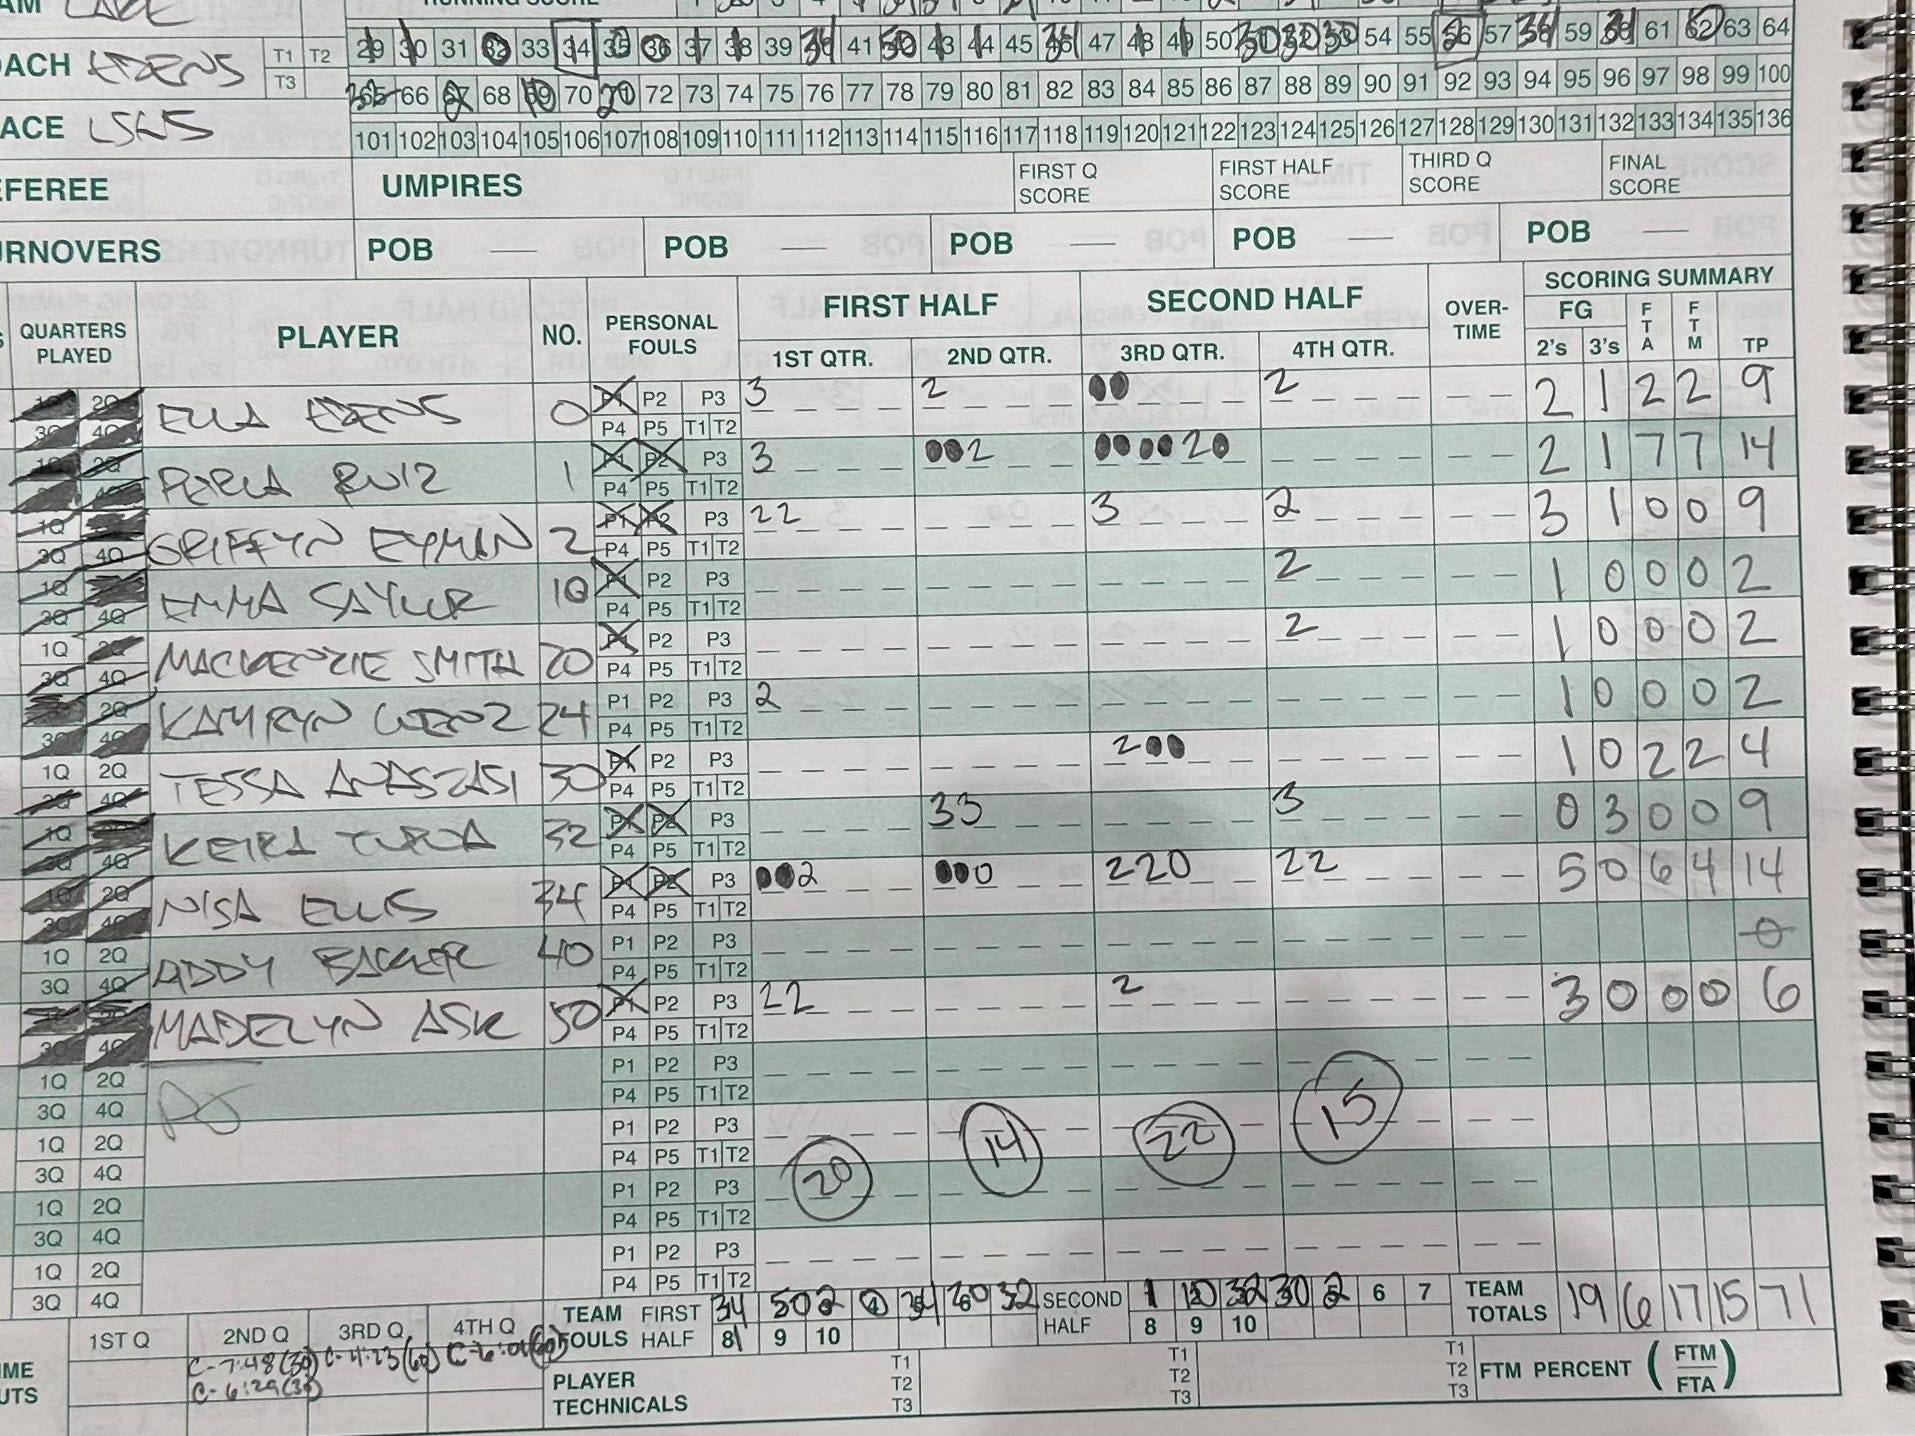 RUNNING SCORE
29 30 31 32 33 34 35 36 37 38 39 41 43 44 45 47 48 49 50 54 55 56 57 59 61 62 63 64
COACH EDENS T1 T2 T3
66 67 68 69 70 72 73 74 75 76 77 78 79 80 81 82 83 84 85 86 87 88 89 90 91 92 93 94 95 96 97 98 99 100
PLACE LSWS
101 102 103 104 105 106 107 108 109 110 111 112 113 114 115 116 117 118 119 120 121 122 123 124 125 126 127 128 129 130 131 132 133 134 135 136
REFEREE UMPIRES FIRST Q SCORE FIRST HALF SCORE THIRD Q SCORE FINAL SCORE
TURNOVERS POB — POB — POB — POB — POB —
QUARTERS PLAYED PLAYER NO. PERSONAL FOULS FIRST HALF SECOND HALF OVER-TIME SCORING SUMMARY
1ST QTR. 2ND QTR. 3RD QTR. 4TH QTR. FG 2's 3's FTA FTM TP
ELLA EDENS 0 P1 P2 P3 3 2 2 2 1 2 2 9
P4 P5 T1 T2
PERLA RUIZ 1 P1 P2 P3 3 2 2 0 2 1 7 7 14
P4 P5 T1 T2
1Q GRIFFYN EYMAN 2 P1 P2 P3 22 3 2 3 1 0 0 9
3Q 4Q P4 P5 T1 T2
1Q EMMA SAYLOR 10 P1 P2 P3 2 1 0 0 0 2
3Q 4Q P4 P5 T1 T2
1Q 2Q MACKENZIE SMITH 20 P1 P2 P3 2 1 0 0 0 2
3Q 4Q P4 P5 T1 T2
2Q KAMRYN WENZ 24 P1 P2 P3 2 1 0 0 0 2
3Q 4Q P4 P5 T1 T2
1Q 2Q TESSA ANASZASI 30 P1 P2 P3 2 1 0 2 2 4
3Q 4Q P4 P5 T1 T2
1Q KEIRA TURDA 32 P1 P2 P3 33 3 0 3 0 0 9
3Q 4Q P4 P5 T1 T2
1Q 2Q NISA ELLIS 34 P1 P2 P3 2 0 220 22 5 0 6 4 14
3Q 4Q P4 P5 T1 T2
1Q 2Q ADDY 40 P1 P2 P3 0
3Q 4Q P4 P5 T1 T2
MADELYN ASK 50 P1 P2 P3 22 2 3 0 0 0 6
3Q 4Q P4 P5 T1 T2
1Q 2Q P1 P2 P3
3Q 4Q P4 P5 T1 T2
1Q 2Q P1 P2 P3 14 22 15
3Q 4Q P4 P5 T1 T2
1Q 2Q P1 P2 P3 20
3Q 4Q P4 P5 T1 T2
1Q 2Q P1 P2 P3
3Q 4Q P4 P5 T1 T2
TEAM FOULS FIRST HALF 34 50 2 34 20 32 SECOND HALF 1 10 32 30 2 6 7 TEAM TOTALS 19 6 17 15 71
8 9 10 8 9 10
1ST Q 2ND Q 3RD Q 4TH Q
C-7:48(30) C-4:23(60) C-6:01(60)
C-6:29(30)
TIME OUTS
PLAYER TECHNICALS T1 T2 T3 T1 T2 T3 T1 T2 T3 FTM PERCENT (FTM/FTA)